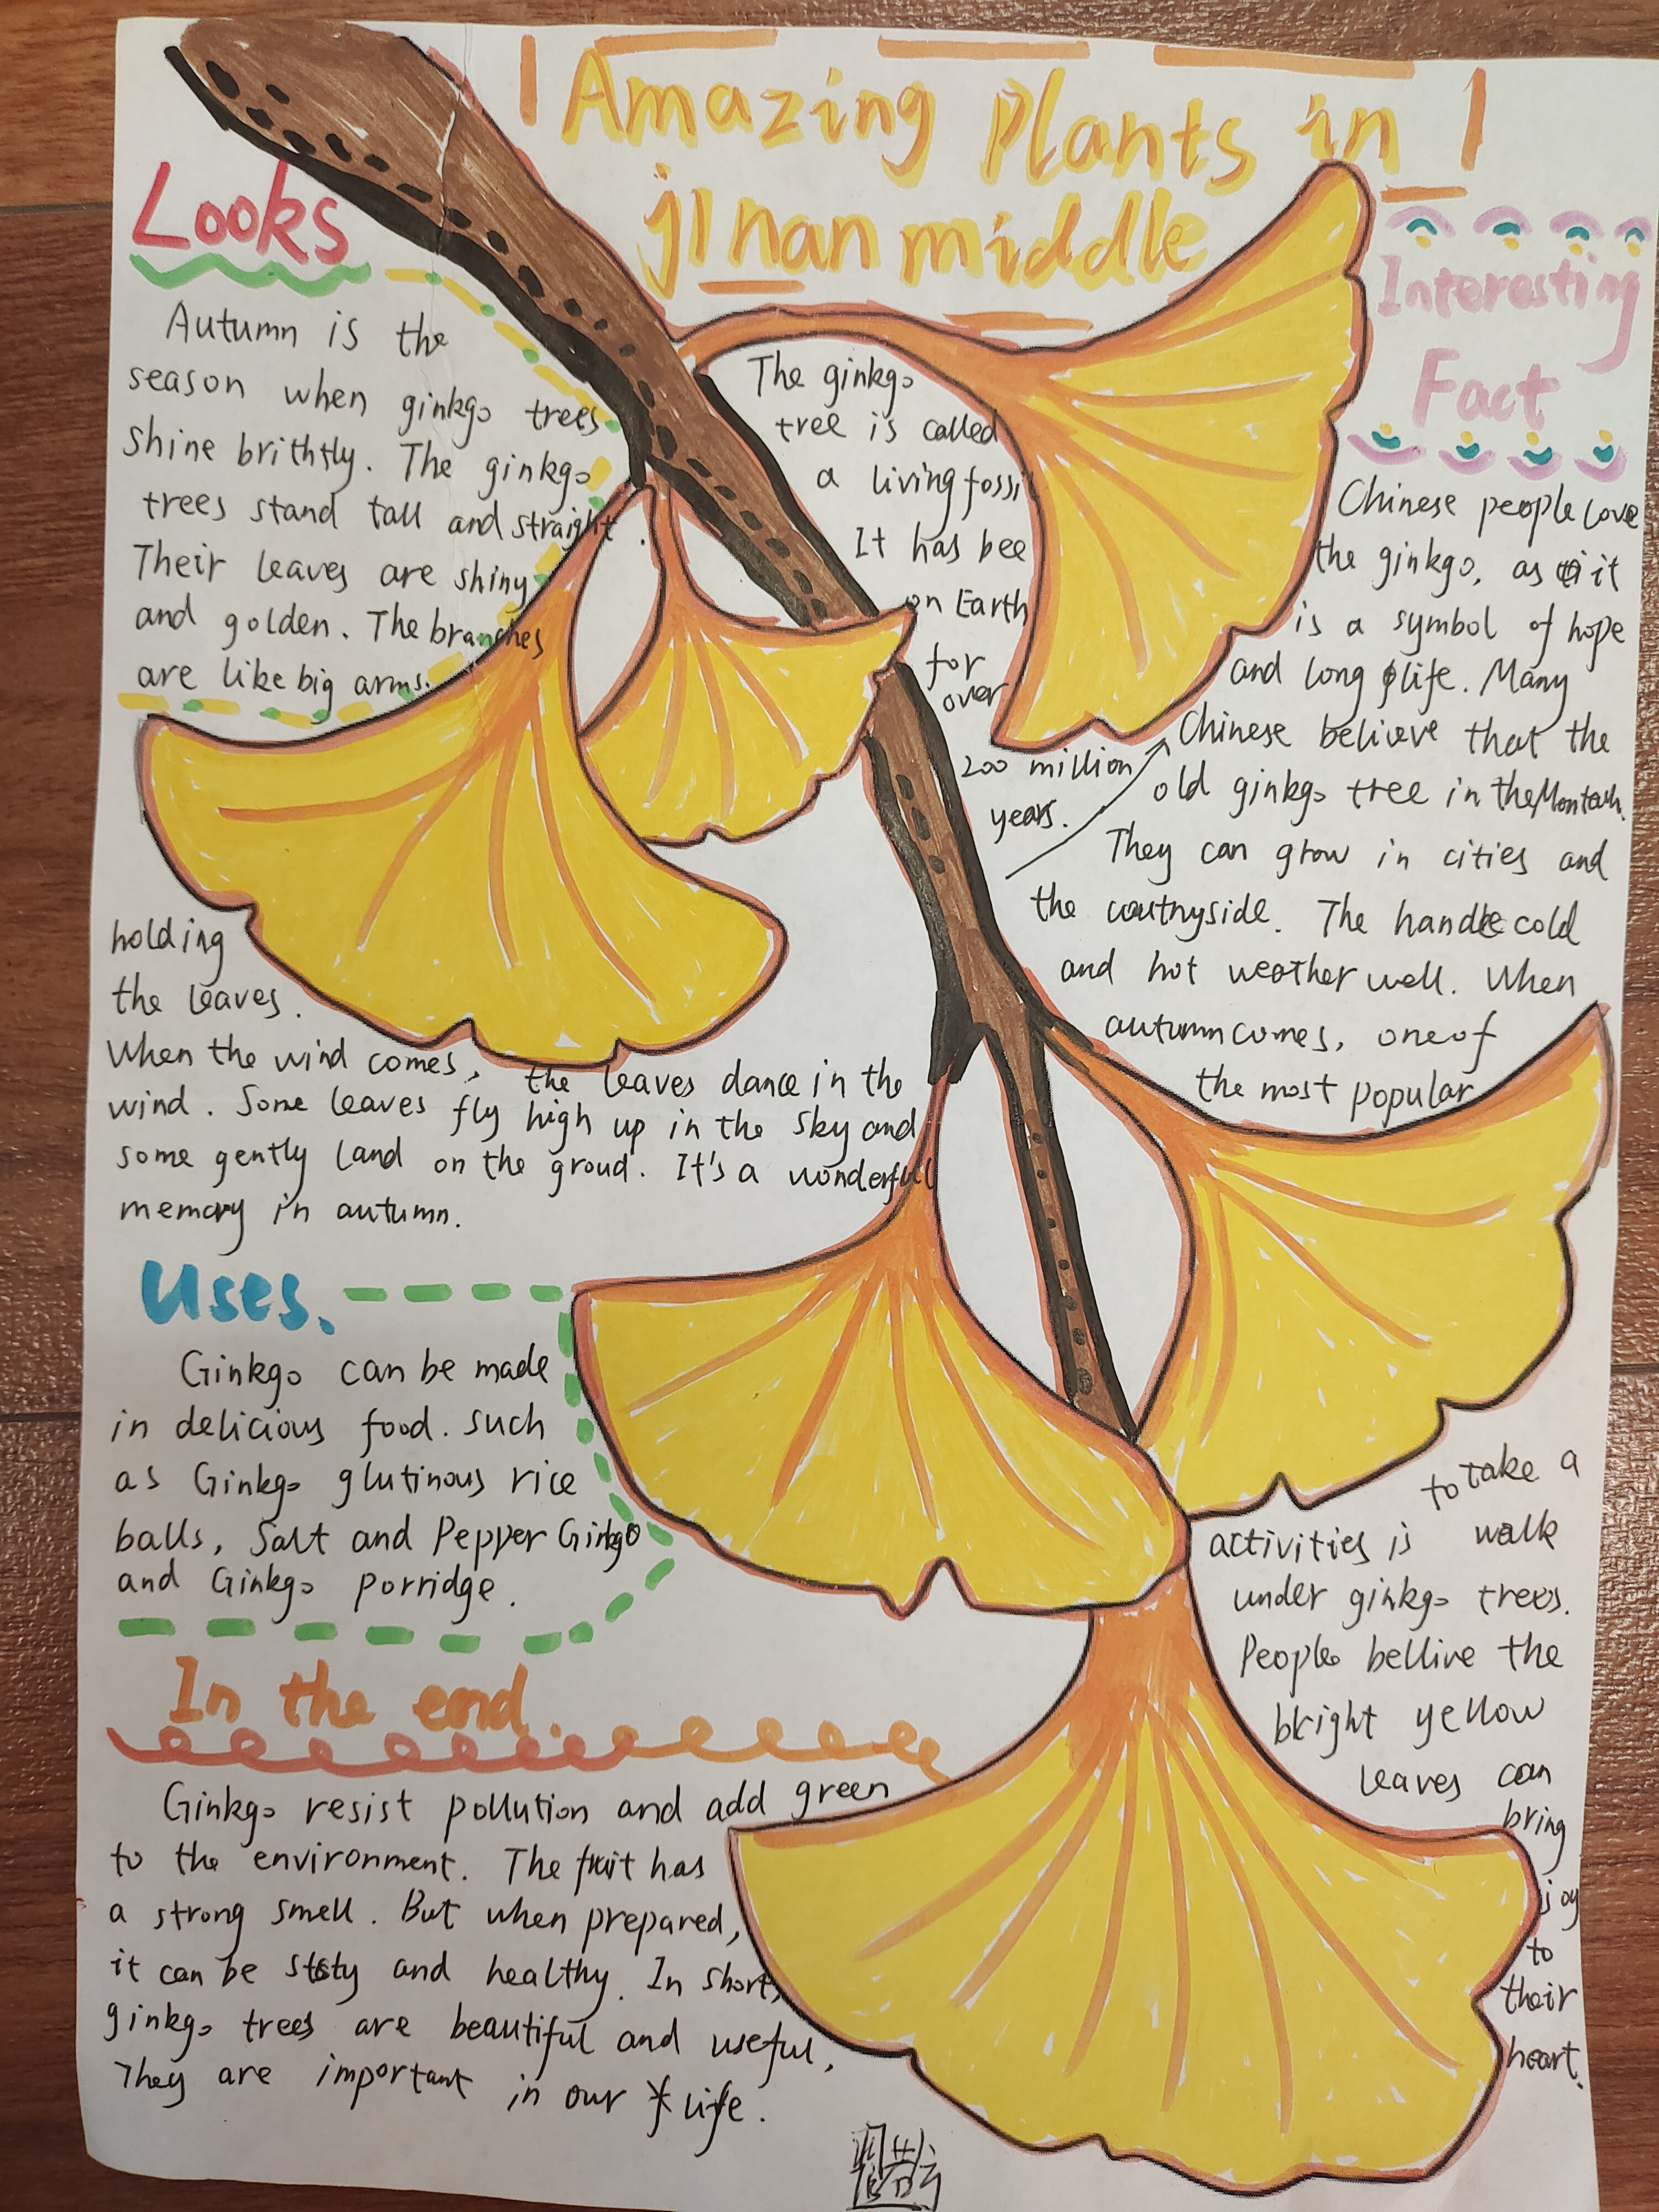 Amazing Plants in
jinan middle
Looks
Autumn is the
season when ginkgo trees
shine brithtly. The ginkgo
trees stand tall and straight.
Their leaves are shiny
and golden. The branches
are like big arms.
holding
the leaves.
When the wind comes, the leaves dance in the
wind. Some leaves fly high up in the sky and
some gently land on the groud. It's a wonderful
memory in autumn.
Uses.
Ginkgo can be made
in delicious food. such
as Ginkgo glutinous rice
balls, Salt and Pepper Ginkgo
and Ginkgo porridge.
In the end.
Ginkgo resist pollution and add green
to the environment. The fruit has
a strong smell. But when prepared,
it can be and healthy. In short,
ginkgo trees are beautiful and useful,
They are important in our life.
Interesting
Fact
The ginkgo
tree is called
a living fossi
It has bee
on Earth
for
over
200 million
years.
Chinese people love
the ginkgo, as it
is a symbol of hope
and long life. Many
Chinese believe that the
old ginkgo tree in the
They can grow in cities and
the countryside. The handle cold
and hot weather well. When
autumn comes, one of
the most popular
to take a
activities is walk
under ginkgo trees.
People bellive the
bright yellow
leaves can
bring
joy
to
their
heart.